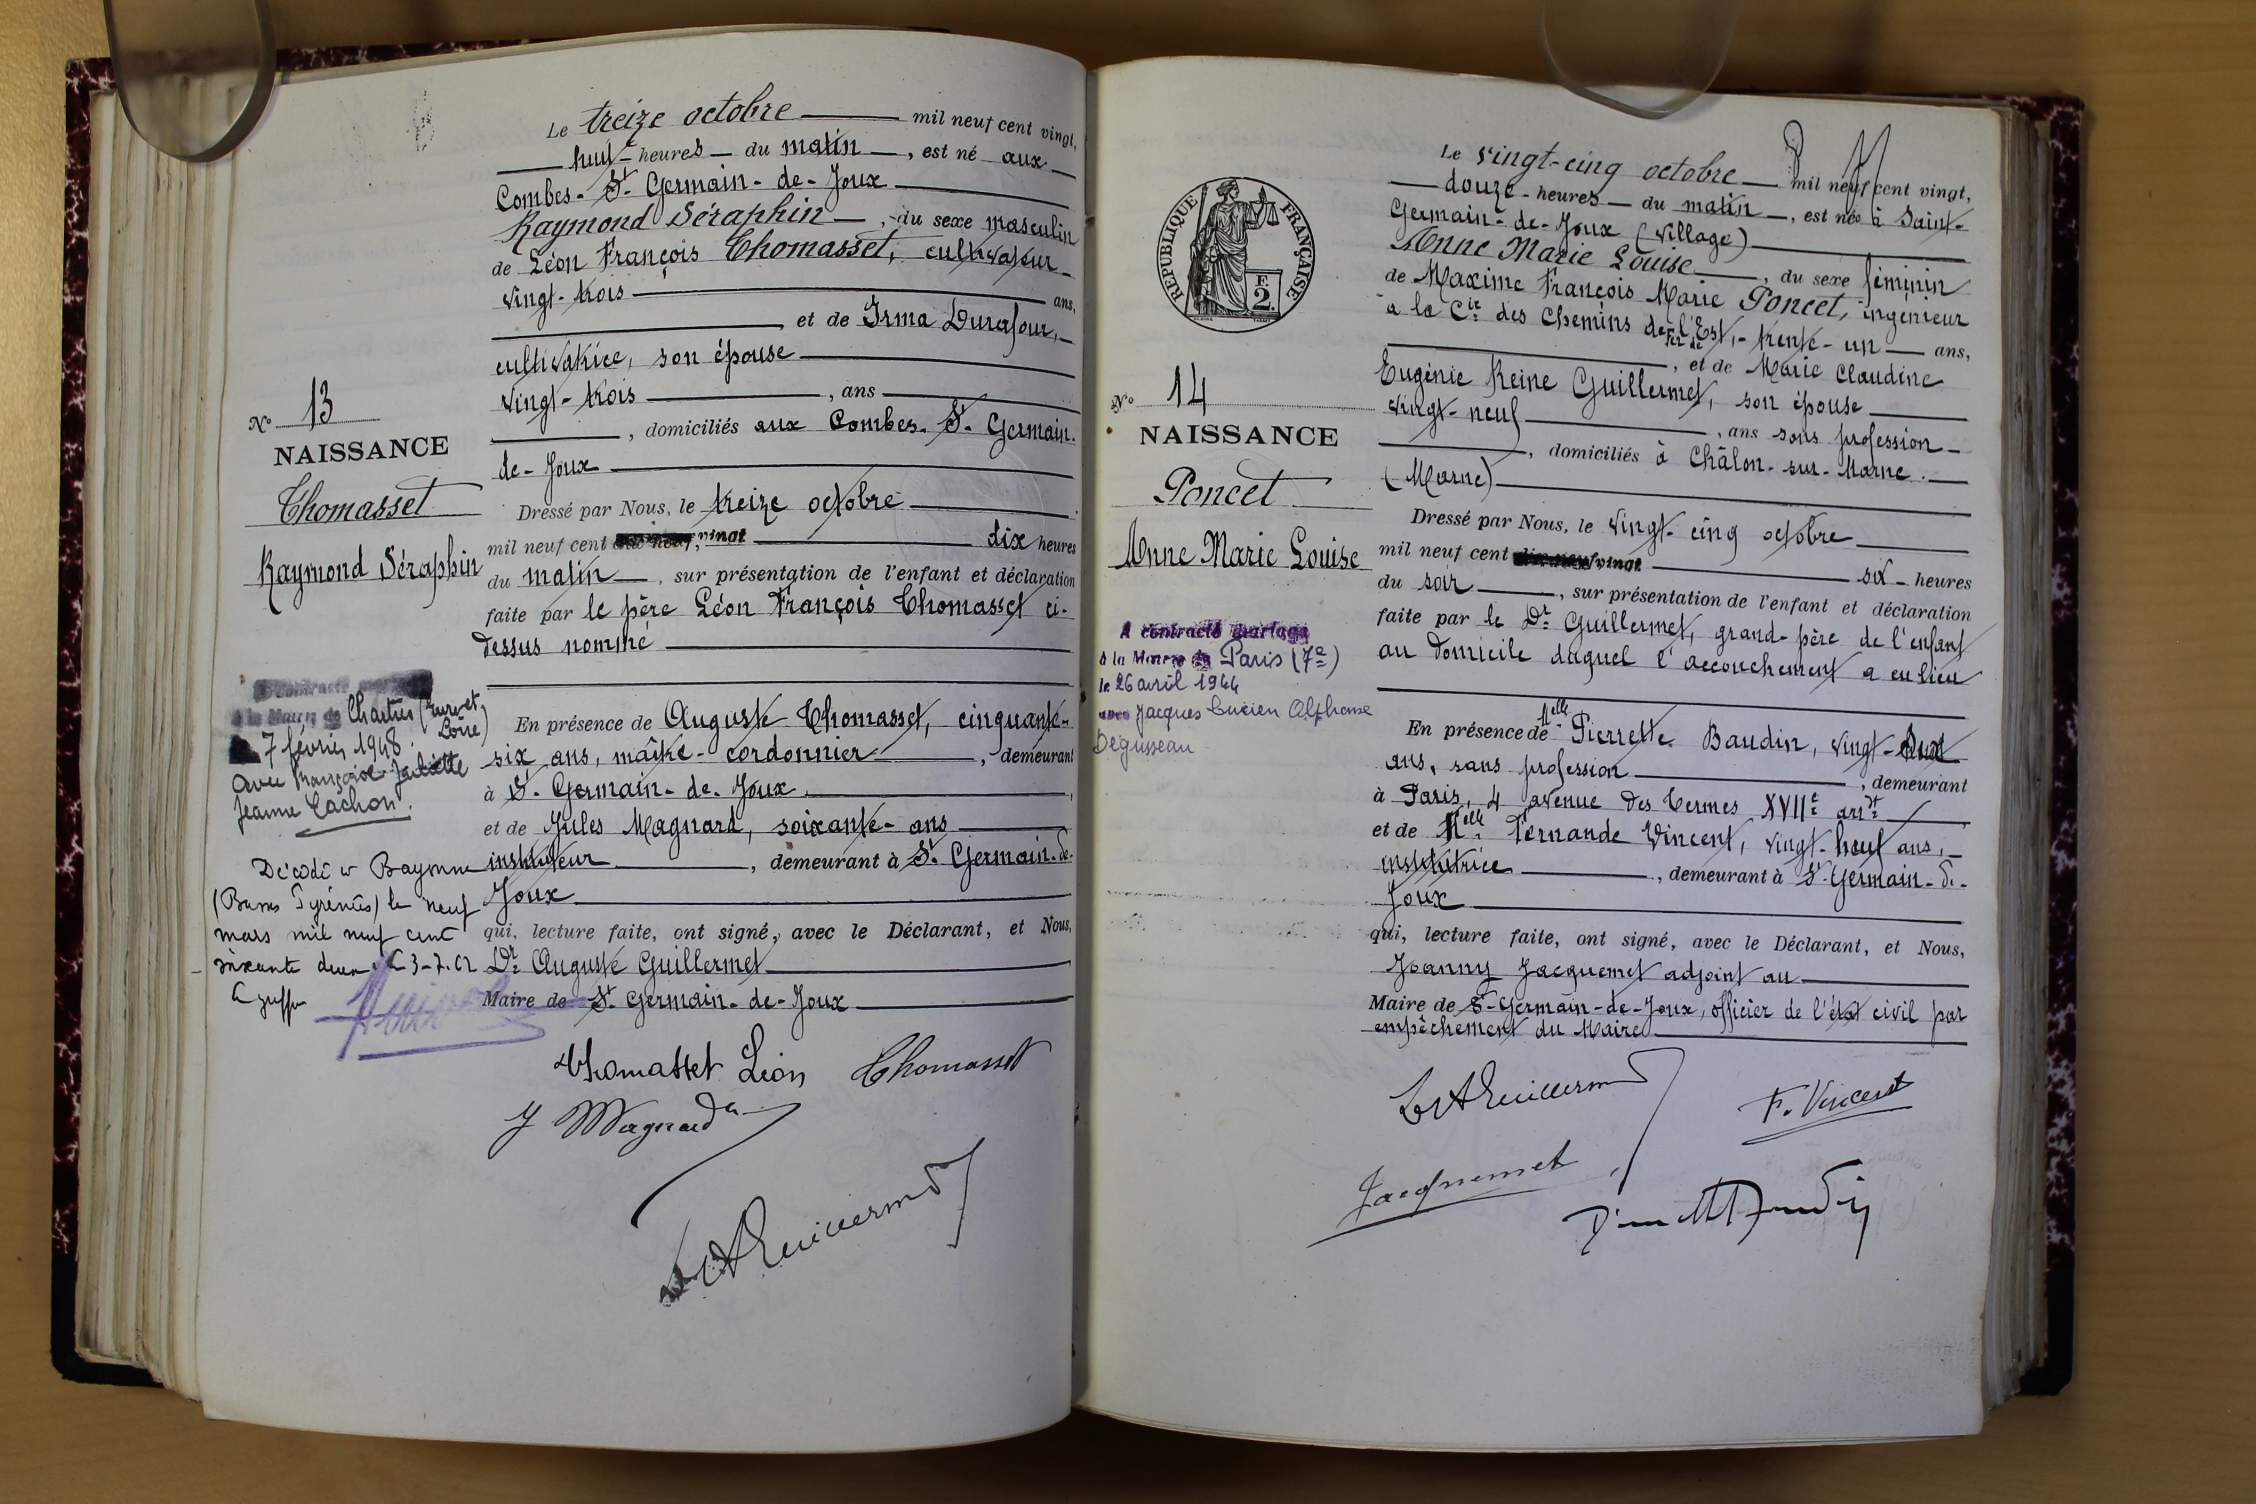 Le treize octobre mil neuf cent vingt,
huit heures du matin, est né aux
Combes-St-Germain-de-Joux
Raymond Séraphin, du sexe masculin
de Léon François Thomasset, cultivateur
vingt-trois ans,
et de Irma Durafour,
cultivatrice, son épouse
vingt-trois, ans
, domiciliés aux Combes-St-Germain-
de-Joux
Dressé par Nous, le treize octobre
mil neuf cent vingt dix heures
du matin, sur présentation de l'enfant et déclaration
faite par le père Léon François Thomasset ci-
dessus nommé
En présence de Auguste Thomasset, cinquante-
six ans, maître-cordonnier, demeurant
à St-Germain-de-Joux,
et de Jules Magnard, soixante-ans
instituteur, demeurant à St-Germain-de-
Joux
qui, lecture faite, ont signé, avec le Déclarant, et Nous,
Dr Auguste Guillermet
Maire de St-Germain-de-Joux
Thomasset Léon Thomasset
J Magnard
Dr A Guillermet
No 13
NAISSANCE
Thomasset
Raymond Séraphin
A contracté mariage
à la Mairie de Chartres (Eure et
Loire)
7 février 1948
avec Françoise Juliette
Jeanne Cachon.
Décédé à Bayonne
(Basses Pyrénées) le neuf
mars mil neuf cent
soixante deux.
RÉPUBLIQUE FRANÇAISE
F. 2
No 14
NAISSANCE
Poncet
Anne Marie Louise
A contracté mariage
à la Mairie de Paris (7e)
le 26 avril 1944
avec Jacques Lucien Alphonse
Degusseau
Le vingt-cinq octobre mil neuf cent vingt,
douze heures du matin, est née à Saint-
Germain-de-Joux (village)
Anne Marie Louise, du sexe féminin
de Maxime François Marie Poncet, ingénieur
à la Cie des Chemins de fer de l'Est, trente-un ans,
, et de Marie Claudine
Eugénie Reine Guillermet, son épouse
vingt-neuf, ans sans profession
, domiciliés à Châlon-sur-Marne
(Marne)
Dressé par Nous, le vingt-cinq octobre
mil neuf cent vingt six heures
du soir, sur présentation de l'enfant et déclaration
faite par le Dr Guillermet, grand-père de l'enfant
au domicile duquel l'accouchement a eu lieu
En présence de Melle Pierrette Baudin, vingt-deux
ans, sans profession, demeurant
à Paris, 4 avenue des Termes XVIIe arrt
et de Melle Fernande Vincent, vingt-neuf ans,
institutrice, demeurant à St-Germain-de-
Joux
qui, lecture faite, ont signé, avec le Déclarant, et Nous,
Joanny Jacquemet adjoint au
Maire de St-Germain-de-Joux, officier de l'état civil par
empêchement du Maire
Dr A Guillermet
F. Vincent
Jacquemet
Pierrette Baudin